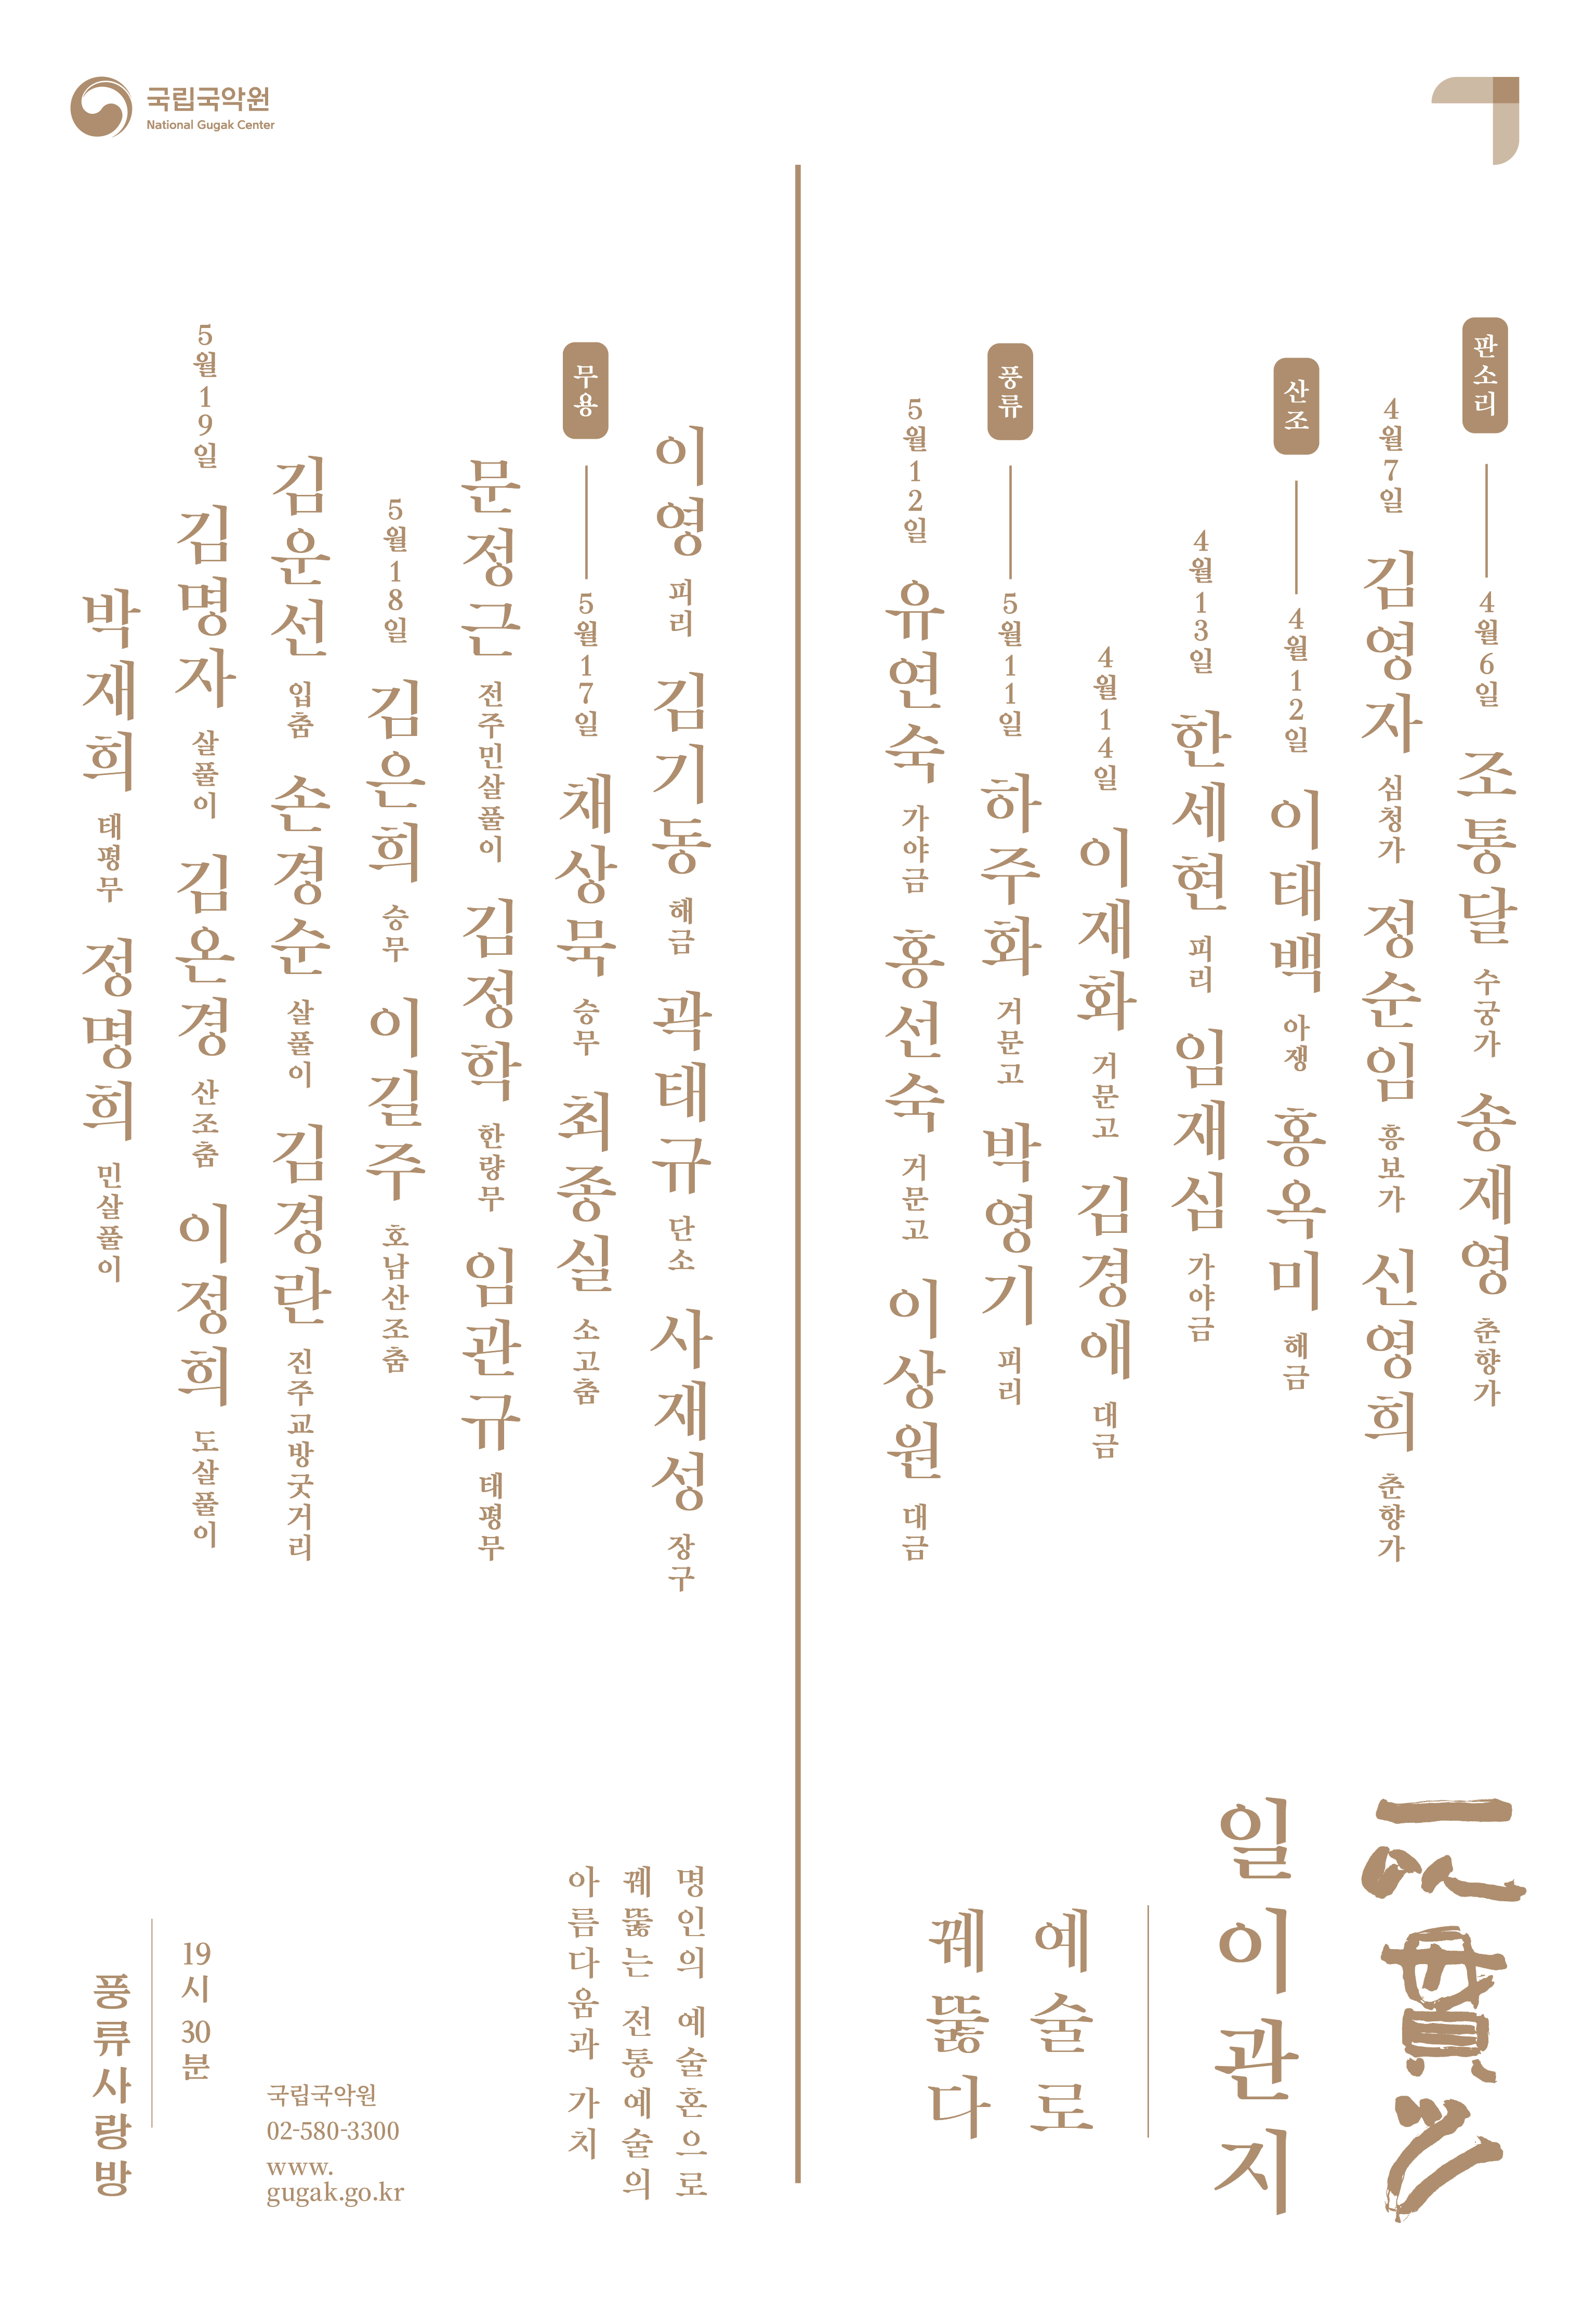 국립국악원
National Gugak Center
판소리 4월6일 조통달 수궁가 송재영 춘향가
4월7일 김영자 심청가 정순임 흥보가 신영희 춘향가
산조 4월12일 이태백 아쟁 홍옥미 해금
4월13일 한세현 피리 임재심 가야금
4월14일 이재화 거문고 김경애 대금
풍류 5월11일 하주화 거문고 박영기 피리
5월12일 유연숙 가야금 홍선숙 거문고 이상원 대금
이영 피리 김기동 해금 곽태규 단소 사재성 장구
무용 5월17일 채상묵 승무 최종실 소고춤
문정근 전주민살풀이 김정학 한량무 임관규 태평무
5월18일 김은희 승무 이길주 호남산조춤
김운선 입춤 손경순 살풀이 김경란 진주교방굿거리
5월19일 김명자 살풀이 김온경 산조춤 이정희 도살풀이
박재희 태평무 정명희 민살풀이
一以貫之
일이관지
예술로
꿰뚫다
명인의 예술혼으로
꿰뚫는 전통예술의
아름다움과 가치
국립국악원
02-580-3300
www.
gugak.go.kr
19시 30분
풍류사랑방